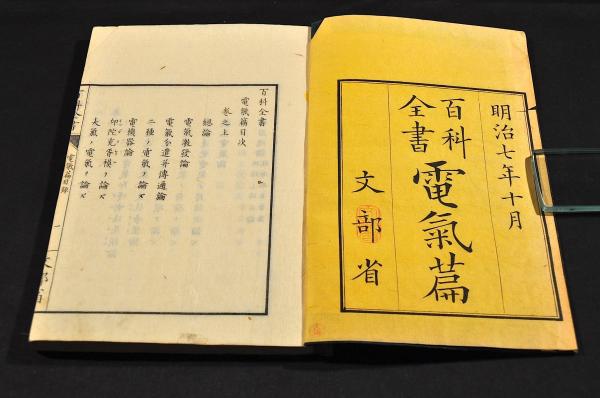 明治七年十月
百科
全書
電氣篇
文部省
百科全書
電氣篇目次
卷之上
總論
電氣激發論
二種ノ電氣ヲ論ス
電機器論
大氣ノ電氣ヲ論ス
電氣篇目錄
一
文部省